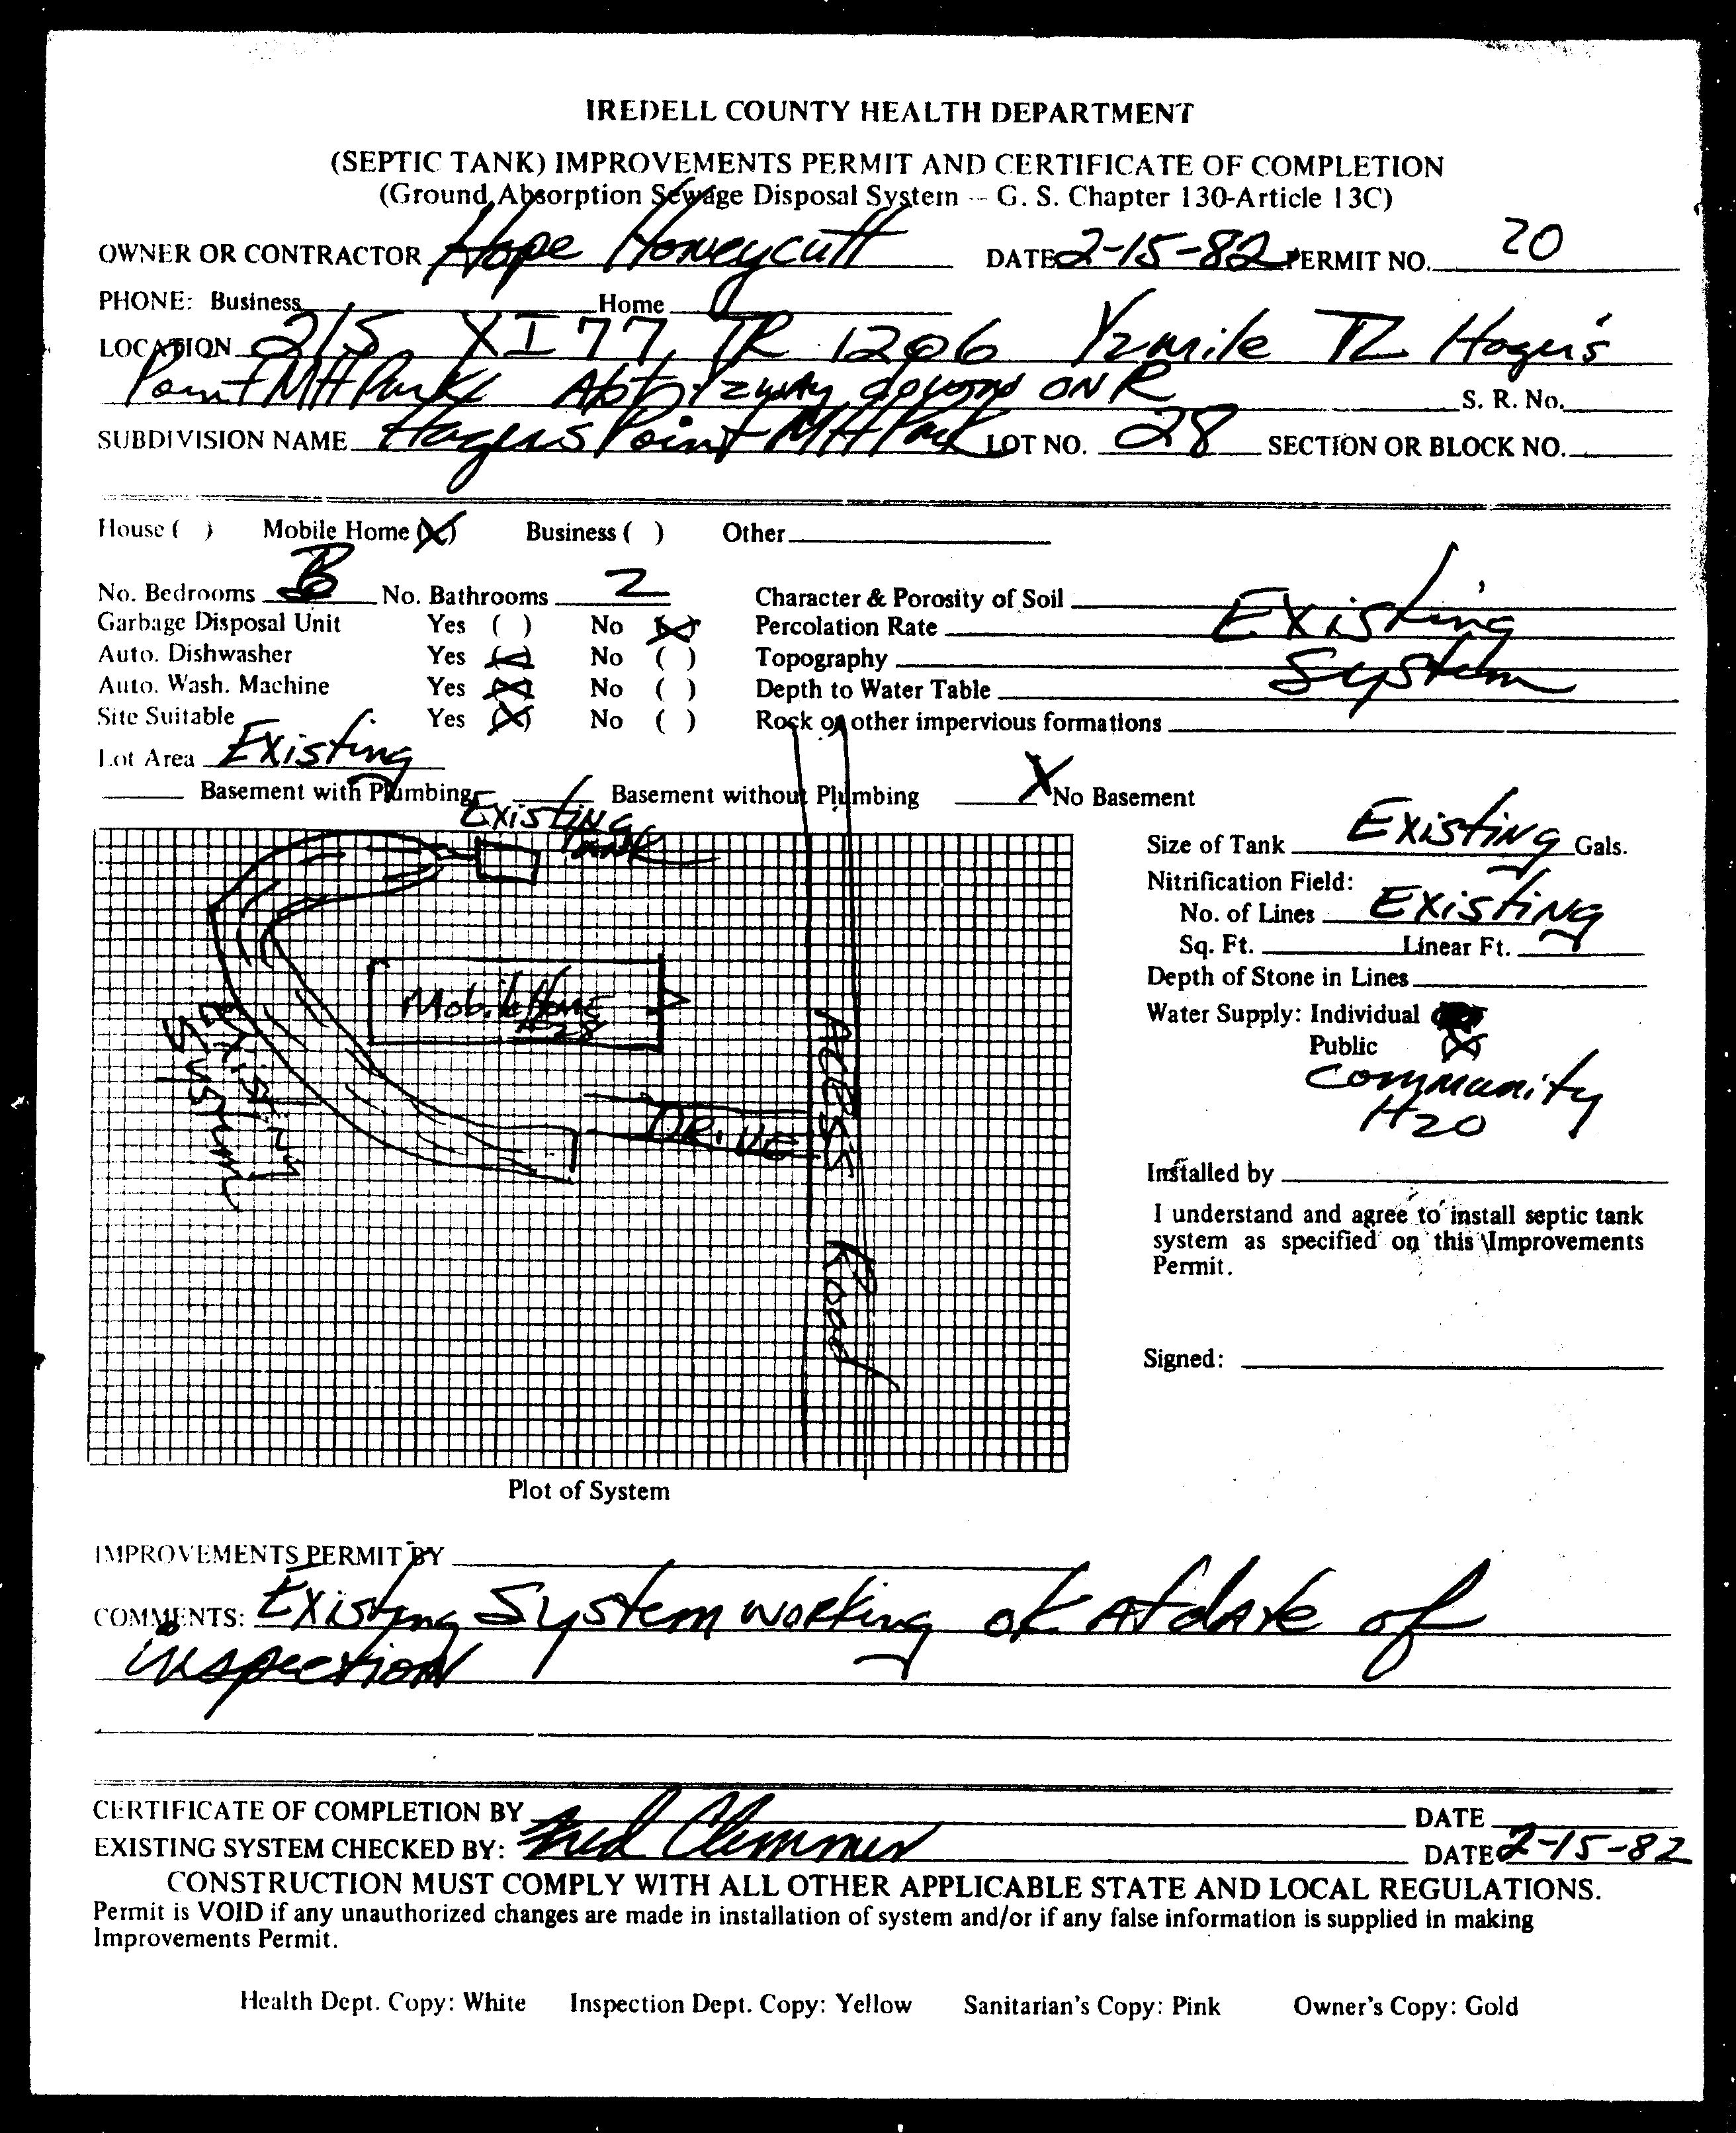 IREDELL COUNTY HEALTH DEPARTMENT
(SEPTIC TANK) IMPROVEMENTS PERMIT AND CERTIFICATE OF COMPLETION
(Ground Absorption Sewage Disposal System -- G. S. Chapter 130-Article 13C)
OWNER OR CONTRACTOR Hope Honeycutt DATE 2-15-82 PERMIT NO. 20
PHONE: Business Home
LOCATION 21S XI 77, TR 1206 1/2 mile TL Hager's
Point MH Park Abt 1/2 way down ON R S. R. No.
SUBDIVISION NAME Hagers Point MH Park LOT NO. 28 SECTION OR BLOCK NO.
House ( ) Mobile Home (X) Business ( ) Other
No. Bedrooms 3 No. Bathrooms 2 Character & Porosity of Soil
Garbage Disposal Unit Yes ( ) No (X) Percolation Rate Existing
Auto. Dishwasher Yes (X) No ( ) Topography System
Auto. Wash. Machine Yes (X) No ( ) Depth to Water Table
Site Suitable Yes (X) No ( ) Rock or other impervious formations
Lot Area Existing
Basement with Plumbing Basement without Plumbing X No Basement
Existing
Tank
Mobile Home
#28
Existing
System
DRIVE
Access Road
Plot of System
Size of Tank Existing Gals.
Nitrification Field:
No. of Lines Existing
Sq. Ft. Linear Ft.
Depth of Stone in Lines
Water Supply: Individual
Public (X)
Community
H20
Installed by
I understand and agree to install septic tank
system as specified on this Improvements
Permit.
Signed:
IMPROVEMENTS PERMIT BY
COMMENTS: Existing System working ok At date of
inspection
CERTIFICATE OF COMPLETION BY DATE
EXISTING SYSTEM CHECKED BY: Fred Clemmer DATE 2-15-82
CONSTRUCTION MUST COMPLY WITH ALL OTHER APPLICABLE STATE AND LOCAL REGULATIONS.
Permit is VOID if any unauthorized changes are made in installation of system and/or if any false information is supplied in making
Improvements Permit.
Health Dept. Copy: White Inspection Dept. Copy: Yellow Sanitarian's Copy: Pink Owner's Copy: Gold